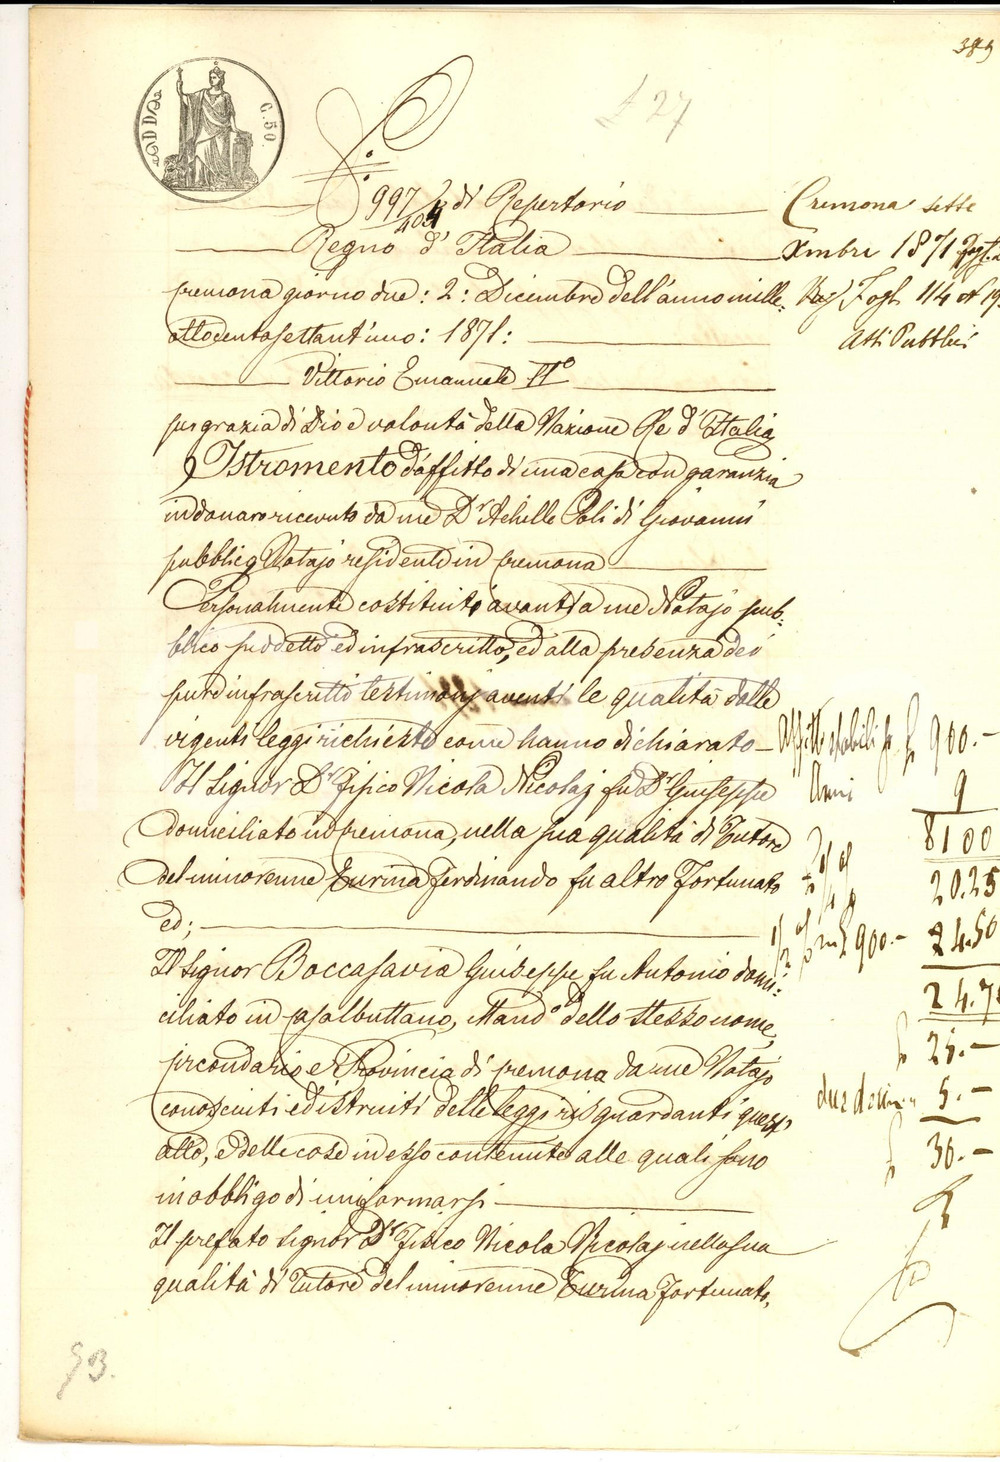 389
£ 27
C. 50
N.° 997/404 di Repertorio
Regno d'Italia
Cremona giorno due: 2: Dicembre dell'anno mille-
ottocentosettant'uno: 1871:
Vittorio Emanuele II°
per grazia di Dio e volontà della Nazione Re d'Italia
Istromento d'affitto di una casa con garanzia
in danaro ricevuto da me Dr Achille Poli di Giovanni
pubblico Notajo residente in Cremona
Personalmente costituiti avanti a me Notajo pub-
blico suddetto ed infrascritto, ed alla presenza dei
pure infrascritti testimonj aventi le qualità dalle
vigenti leggi richieste come hanno dichiarato
Il Signor Dr Fisico Nicola Nicolaj fu Dr Giuseppe
domiciliato in Cremona, nella sua qualità di Tutore
del minorenne Turina Ferdinando fu altro Fortunato
ed;
Il Signor Boccasavia Giuseppe fu Antonio domi-
ciliato in Casalbuttano, Mand.° dello stesso nome,
Circondario e Provincia di Cremona da me Notajo
conosciuti ed istruiti delle leggi risguardanti quest'
atto, e delle cose in esso contenute alle quali sono
in obbligo di uniformarsi
Il prefato Signor Dr Fisico Nicola Nicolaj nella sua
qualità di Tutore del minorenne Turina Fortunato,
Cremona sette
Xmbre 1871
Reg. Fogl 114 N 19
Atti Pubblici
Affitto stabili 900.-
Anni 9
8100
20.25
900.- 24.50
24.7
25.-
due decimi 5.-
30.-
93.